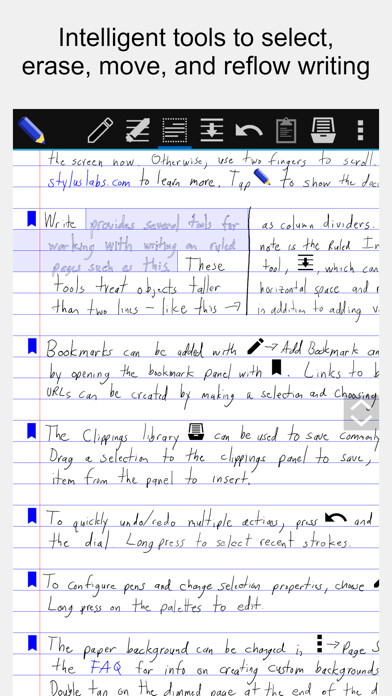 Intelligent tools to select,
erase, move, and reflow writing
the screen now. Otherwise, use two fingers to scroll.
styluslabs.com to learn more. Tap to show the
Write provides several tools for
working with writing on ruled
pages such as this. These
tools treat objects taller
than two lines - like this →
as column dividers.
note is the Ruled
tool, , which can
horizontal space and
in addition to adding
Bookmarks can be added with → Add Bookmark
by opening the bookmark panel with . Links to
URLs can be created by making a selection and choosing
The Clippings library can be used to save commonly
Drag a selection to the clippings panel to save,
item from the panel to insert.
To quickly undo/redo multiple actions, press and
the dial Long press to select recent strokes.
To configure pens and change selection properties, choose
Long press on the palettes to edit.
The paper background can be changed in → Page
the FAQ for info on creating custom backgrounds
Double tap on the dimmed page at the end of the